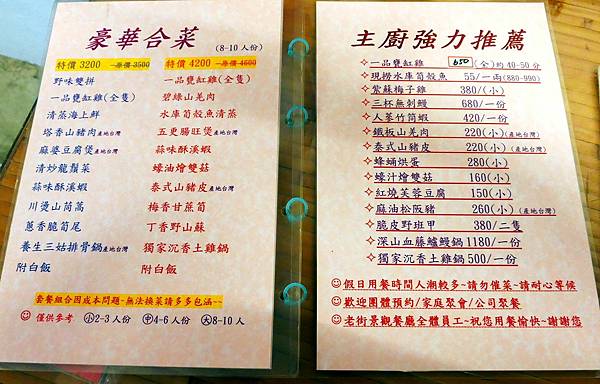 豪華合菜
(8-10人份)
特價3200 原價3500
野味雙拼
一品甕缸雞(全隻)
清蒸海上鮮
塔香山豬肉產地台灣
麻婆豆腐煲產地台灣
清炒龍鬚菜
蒜味酥溪蝦
川燙山茼蒿
蔥香脆筍尾
養生三菇排骨鍋產地台灣
附白飯
特價4200 原價4600
一品甕缸雞(全隻)
碧綠山羌肉
水庫筍殼魚清蒸
五更腸旺煲產地台灣
蒜味酥溪蝦
蠔油燴雙菇
泰式山豬皮產地台灣
梅香甘蔗筍
丁香野山蘇
獨家沉香土雞鍋
附白飯
套餐組合因成本問題~無法換菜請多多包涵~~
僅供參考 小2-3人份 中4-6人份 大8-10人
主廚強力推薦
一品甕缸雞 650/(全)約40-50分
現撈水庫筍殼魚 55/一兩(880-990)
紫蘇梅子雞 380/(小)
三杯無刺鰻 680/一份
人蔘竹筒蝦 420/一份
鐵板山羌肉 220(小)(產地台灣)
泰式山豬皮 220(小)(產地台灣)
蜂蛹烘蛋 280(小)
蠔汁燴雙菇 160(小)
紅燒芙蓉豆腐 150(小)
麻油松阪豬 260(小)(產地台灣)
脆皮野班甲 380/二隻
深山血藤鱸鰻鍋1180/一份
獨家沉香土雞鍋500/一份
假日用餐時間人潮較多~請勿催菜~請耐心等候
歡迎團體預約/家庭聚會/公司聚餐
老街景觀餐廳全體員工~祝您用餐愉快~謝謝您